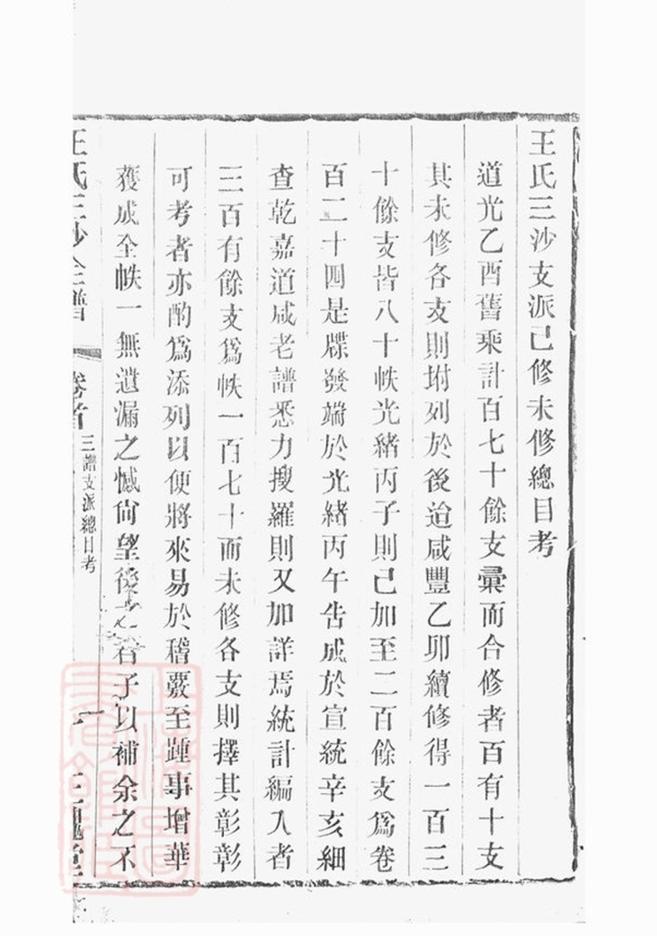 王氏三沙支派已修未修總目考
道光乙酉舊乘計百七十餘支彙而合修者百有十支
其未修各支則坿列於後迨咸豐乙卯續修得一百三
十餘支皆八十帙光緒丙子則已加至二百餘支爲卷
百二十四是牒發端於光緒丙午告成於宣統辛亥細
查乾嘉道咸老譜悉力搜羅則又加詳焉統計編入者
三百有餘支爲帙一百七十而未修各支則擇其彰彰
可考者亦酌爲添列以便將來易於稽覈至踵事增華
獲成全帙一無遺漏之憾尙望後之君子以補余之不
王氏三沙全譜
卷首
三譜支派總目考
一
三槐堂